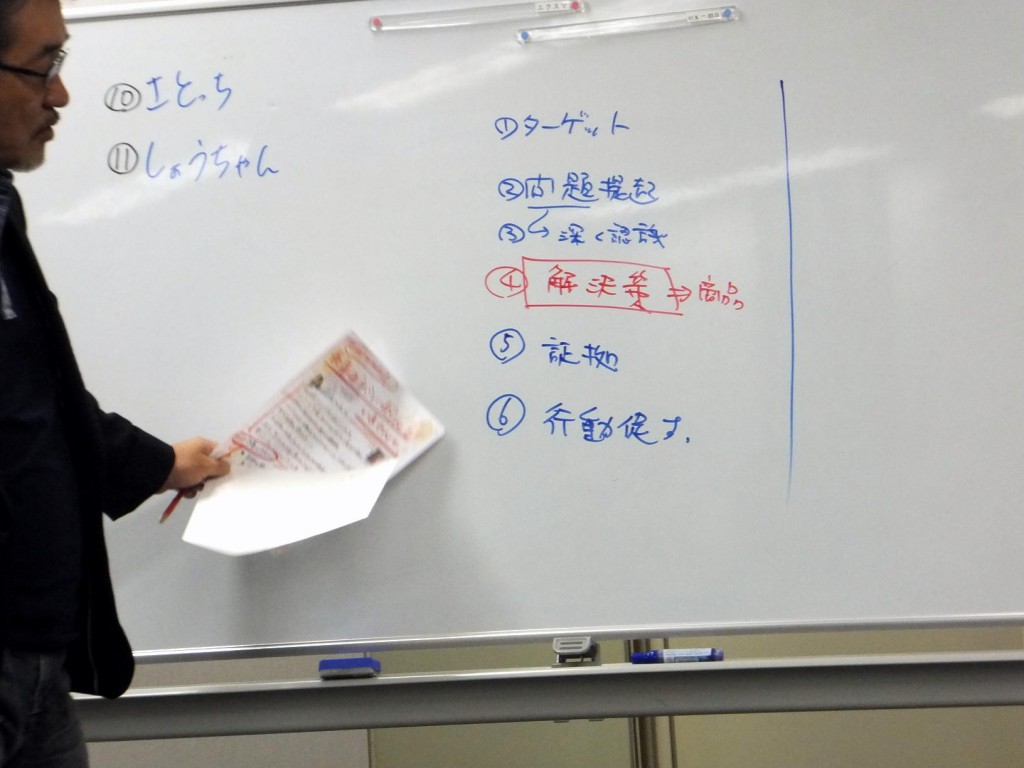 エクスマ
⑩さとっち
⑪しょうちゃん
①ターゲット
②問題提起
③↪深く認識
④解決策⇒商品
⑤証拠
⑥行動促す.